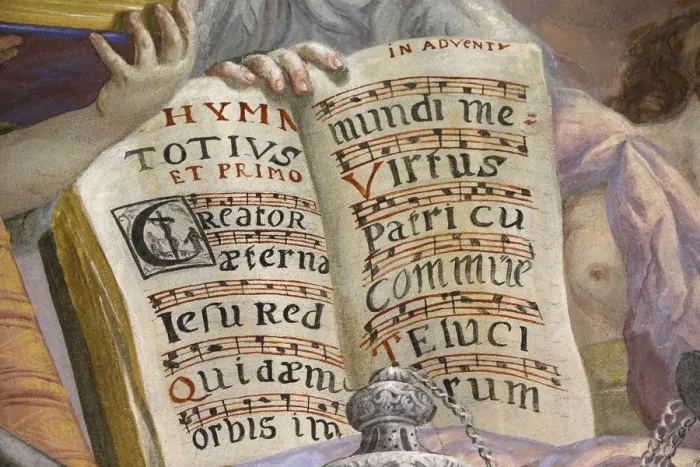 HYMN
TOTIVS
ET PRIMO
CREATOR
æterna
Iesu Red
Quidæmo
orbis im
IN ADVENTV
mundi me=
Virtus
Patri cu
commue
Te luci
rum